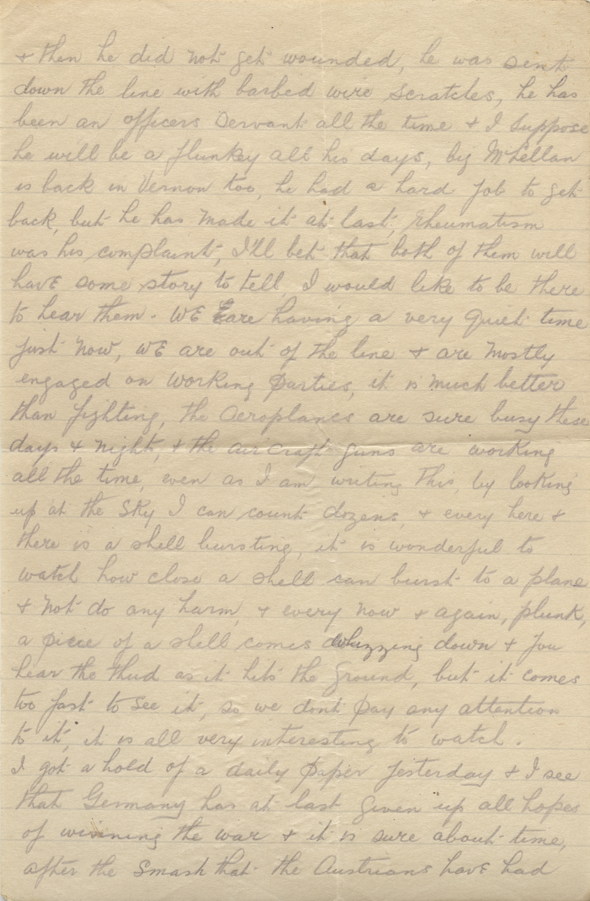 & then he did not get wounded, he was sent
down the line with barbed wire scratches, he has
been an officers servant all the time & I suppose
he will be a flunkey all his days, big McLellan
is back in Vernon too, he had a hard job to get
back, but he has made it at last, Rheumatism
was his complaint, I'll bet that both of them will
have some story to tell I would like to be there
to hear them. We are having a very quiet time
just now, we are out of the line & are mostly
engaged on working parties, it is much better
than fighting, the aeroplanes are sure busy these
days & nights, & the aircraft guns are working
all the time, even as I am writing this, by looking
up at the sky I can count dozens, & every here &
there is a shell bursting, it is wonderful to
watch how close a shell can burst to a plane
& not do any harm, & every now & again, plunk,
a piece of a shell comes whizzing down & you
hear the thud as it hits the ground, but it comes
too fast to see it, so we dont pay any attention
to it, it is all very interesting to watch.
I got a hold of a daily paper yesterday & I see
that Germany has at last given up all hopes
of winning the war & it is sure about time,
after the smash that the Austrians have had